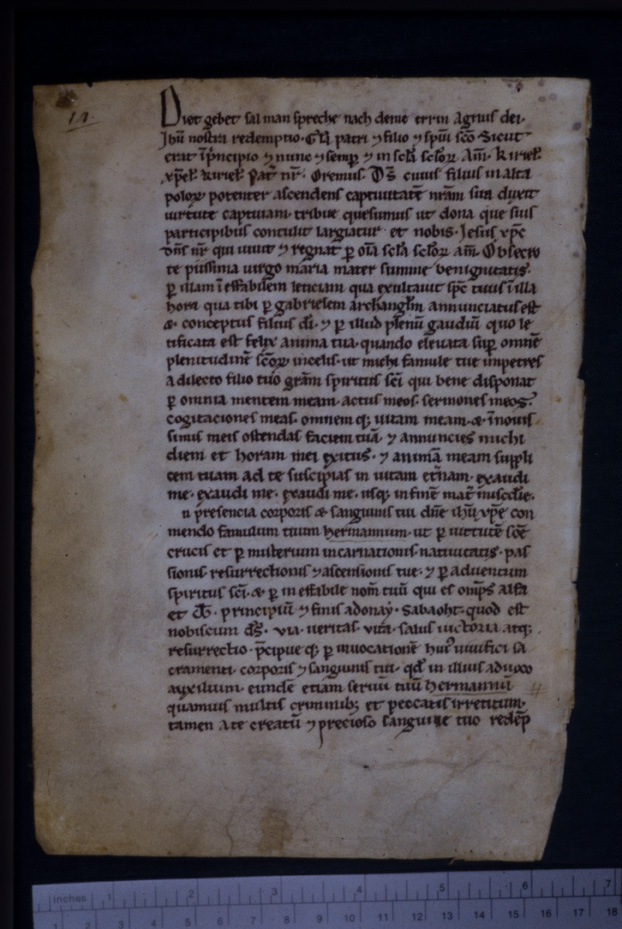 14
Diet gebet sal man spreche nach deme errin Agnus dei.
Jhu nostra redemptio. Gla patri ⁊ filio ⁊ spui sco Sicut
erat i pncipio ⁊ nunc ⁊ semp ⁊ in scla sclor. Am. kiriel.
xpel. kiriel. Pat nr. Oremus. Ds cuius filius in alta
polor potenter ascendens captiuitate nram sua duxit
uirtute captiuam. tribue quesumus ut dona que suis
participibus contulit largiatur et nobis. Jesus xpc
dns nr qui uiuit ⁊ regnat p oia scla sclor am. Obsecro
te piissima uirgo maria mater summe benignitatis.
p illam i effabilem leticiam qua exultauit spc tuus i illa
hora qua tibi p gabrielem archanglm annunciatus est
⁊. conceptus filius di. ⁊ p illud plenu gaudiu quo le
tificata est felix anima tua. quando eleuata sup omne
plenitudine scor incelis. ut michi famule tue impetres
a dilecto filio tuo gram spiritus sci qui bene disponat
p omnia mentem meam. actus meos. sermones meos.
cogitaciones meas. omnem q; uitam meam. ⁊ i nouis
simis meis ostendas faciem tua. ⁊ annuncies michi
diem et horam mei exitus. ⁊ anima meam suppli
cem tuam ad te suscipias in uitam etnam. exaudi
me. exaudi me. exaudi me. usq; in fine mat
n presencia corporis ⁊ sanguinis tui dne ihu xpe con
mendo famulum tuum hermannum. ut p uirtute sce
crucis et p misterium incarnationis. natiuitatis. pas
sionis. resurrectionis ⁊ ascensionis tue. ⁊ p aduentum
spiritus sci. ⁊ p in effabile nom tuu qui es omps alfa
et principiu ⁊ finis adonay. Sabaoht. quod est
nobiscum ds. via. ueritas. vita. salus uictoria atq;
resurrectio. pcipue q; p inuocatione hui uiuifici sa
cramenti. corporis ⁊ sanguinis tui. qd in illius aduoco
auxilium. eunde etiam seruu tuu hermannu
quamuis multis criminib; et peccatis irretitum.
tamen a te creatu ⁊ precioso sanguine tuo redep
inches 1 2 3 4 5 6 7
1 2 3 4 5 6 7 8 9 10 11 12 13 14 15 16 17 18